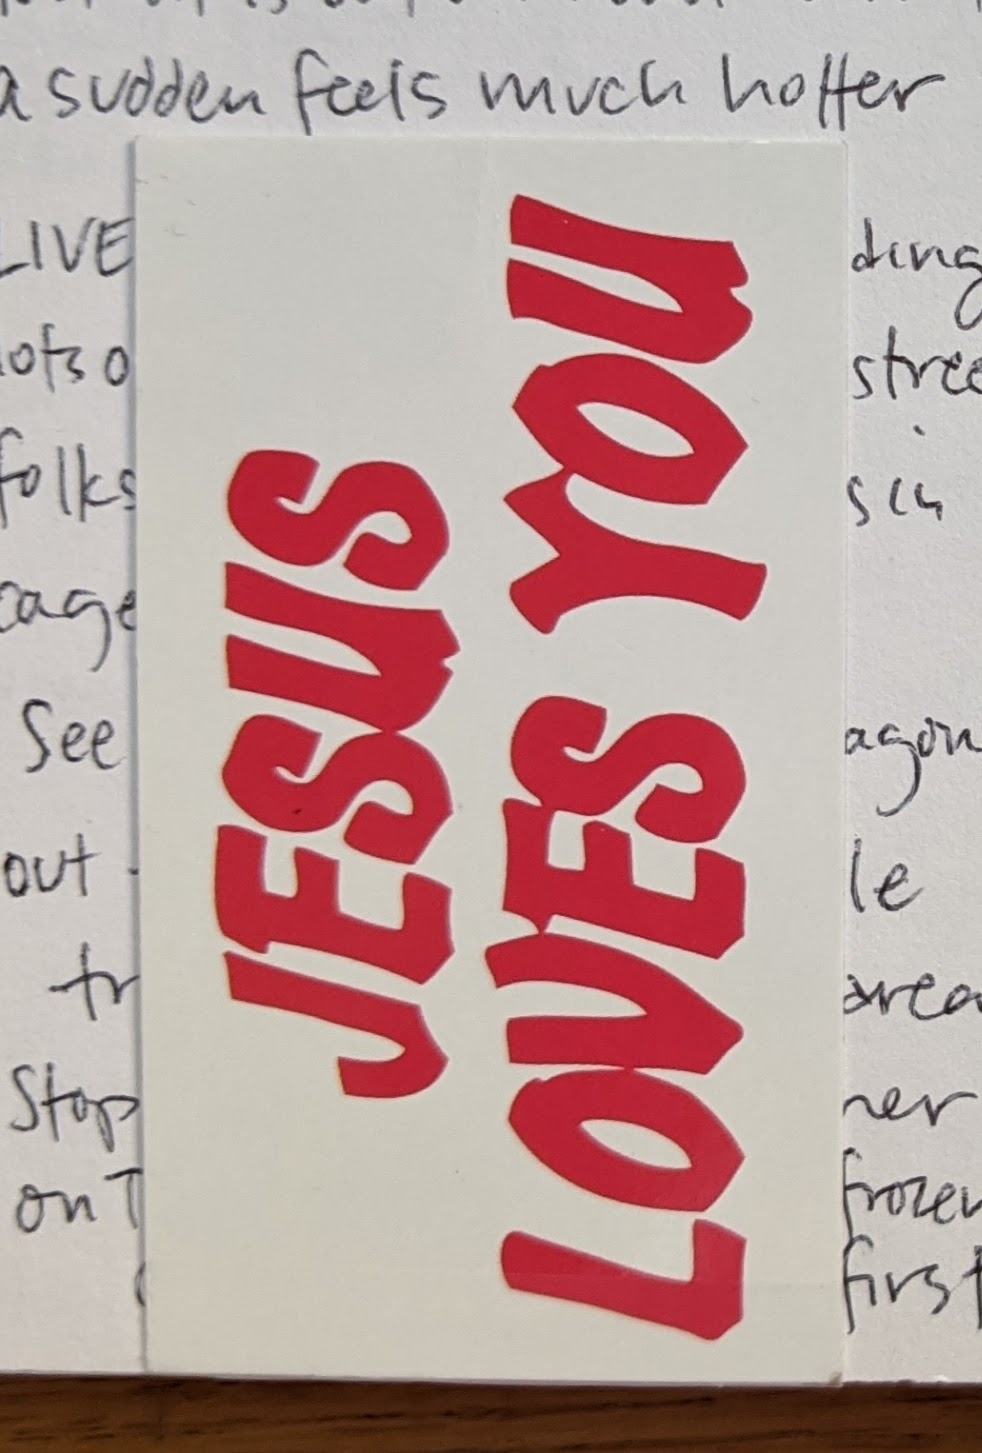 a sudden feels much hotter
LIVE ding
lots o stree
folks s in
cage
See agon
out le
tr area
Stop ner
on T frozen
first
JESUS
LOVES YOU